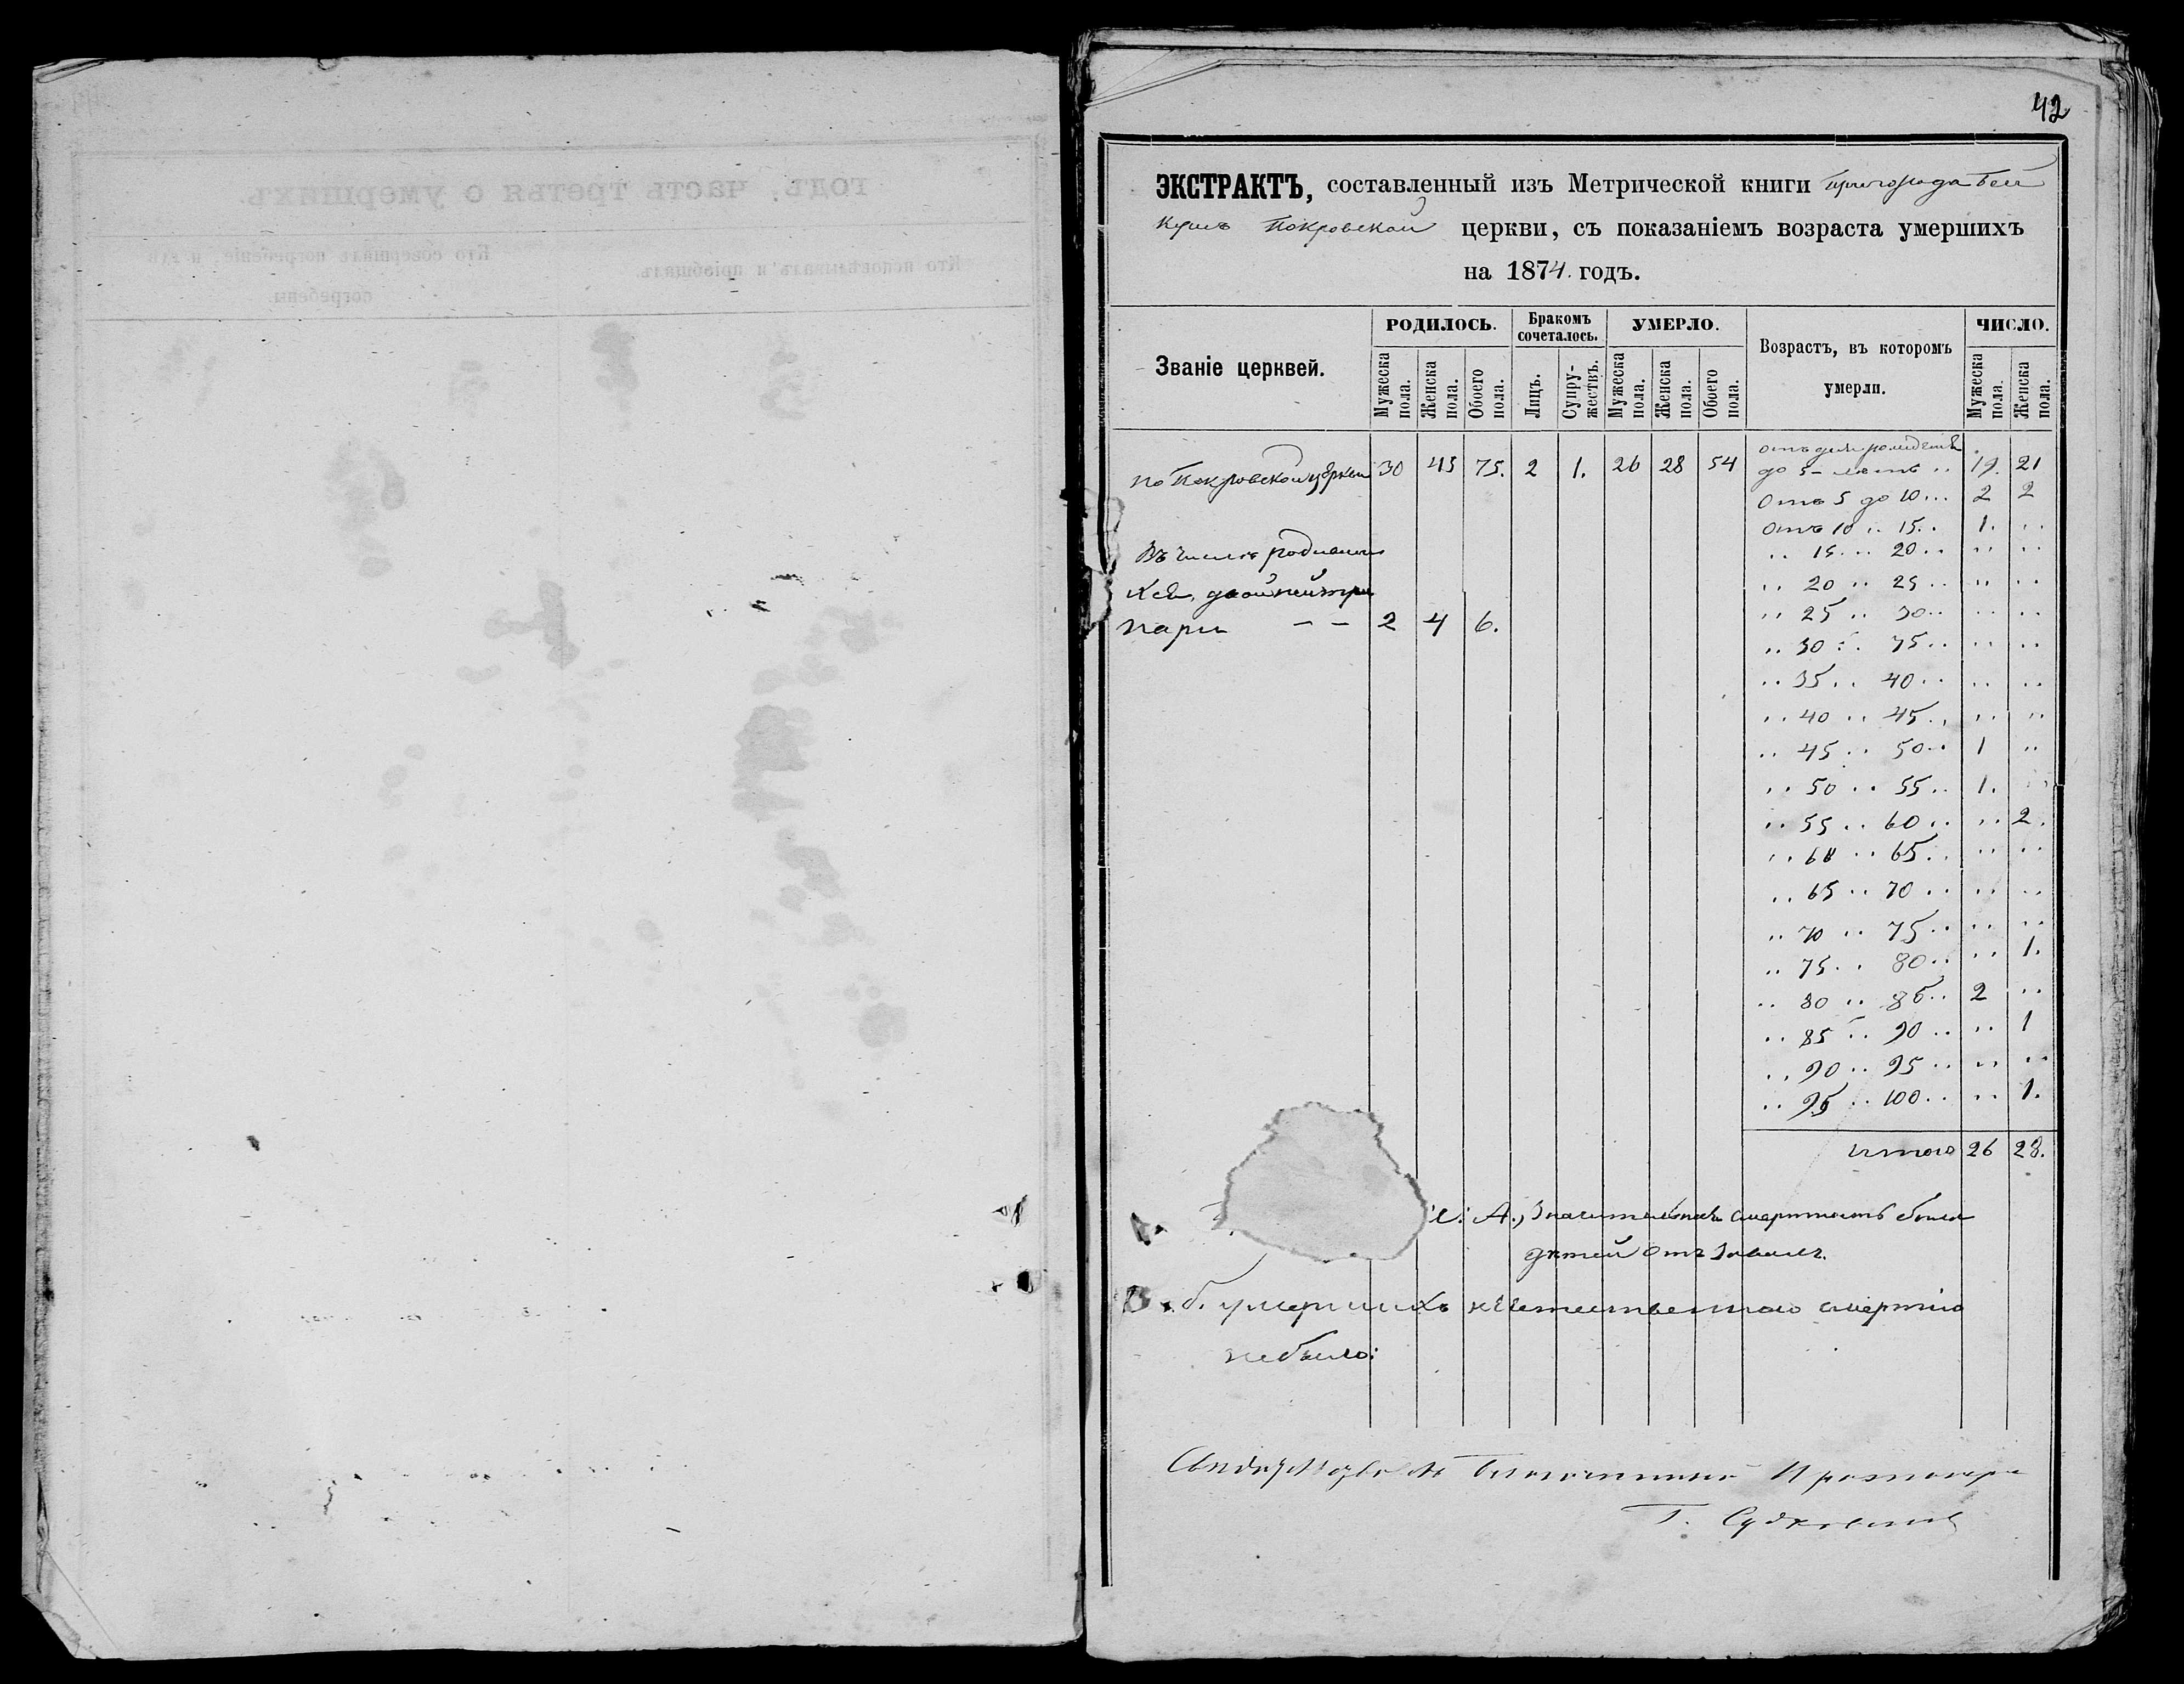 42
ЭКСТРАКТЪ, составленный изъ Метрической книги пригорода
Покровской церкви, съ показаніемъ возраста умершихъ
на 1874. годъ.
Званіе церквей. РОДИЛОСЬ. Бракомъ сочеталось. УМЕРЛО. Возрастъ, въ которомъ умерли. ЧИСЛО.
Мужеска пола. Женска пола. Обоего пола. Лицъ. Супружествъ. Мужеска пола. Женска пола. Обоего пола. Мужеска пола. Женска пола.
отъ дня рожденія
по Покровской церкви 30 45 75. 2 1. 26 28 54 до 5-летъ 19. 21
Отъ 5 до 10... 2 2
Отъ 10 .. 15.. 1. ..
.. 15... 20.. .. ..
Въ числе родивших
.. 20 .. 25.. .. ..
ся, двойней три
.. 25 .. 30.. .. ..
пары — — 2 4 6.
.. 30 .. 75.. .. ..
.. 35.. 40.. .. ..
.. 40 .. 45.. .. ..
.. 45.. 50.. 1 ..
.. 50 .. 55.. 1. ..
.. 55.. 60.. .. 2.
.. 60 .. 65.. .. ..
.. 65.. 70.. .. ..
.. 70 .. 75.. .. ..
.. 75.. 80.. .. 1.
.. 80 .. 85.. 2 ..
.. 85.. 90.. .. 1
.. 90.. 95.. .. ..
.. 95.. 100.. .. 1.
итого 26 28.
А., Значительная смертность была
детей отъ
б. умершихъ неестественною смертію
небыло:
Благочинный Протоіерей
Т.
годъ, часть третья о умершихъ.
Кто исповѣдывалъ и пріобщалъ. Кто совершалъ погребеніе, и гдѣ
погребены.